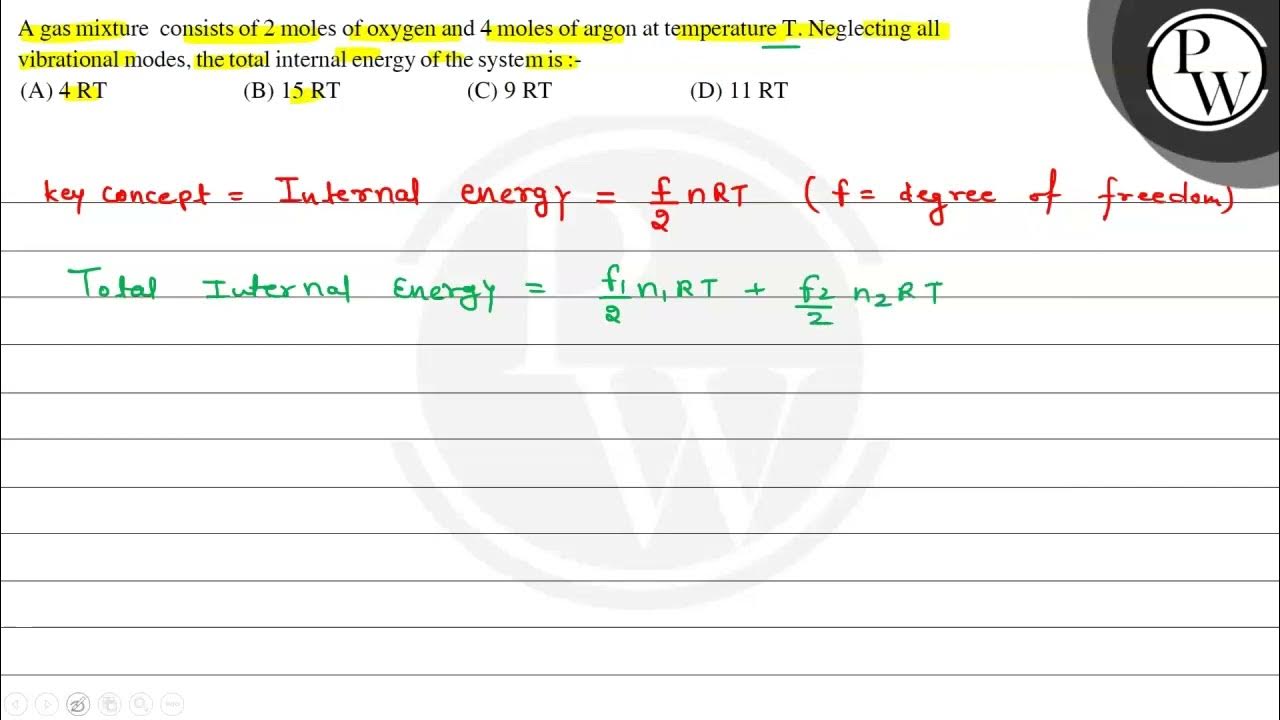 A gas mixture consists of 2 moles of oxygen and 4 moles of argon at temperature T. Neglecting all
vibrational modes, the total internal energy of the system is :-
(A) 4 RT (B) 15 RT (C) 9 RT (D) 11 RT
PW
key concept = Internal energy = f/2 nRT (f = degree of freedom)
Total Internal Energy = f₁/2 n₁RT + f₂/2 n₂RT
PW